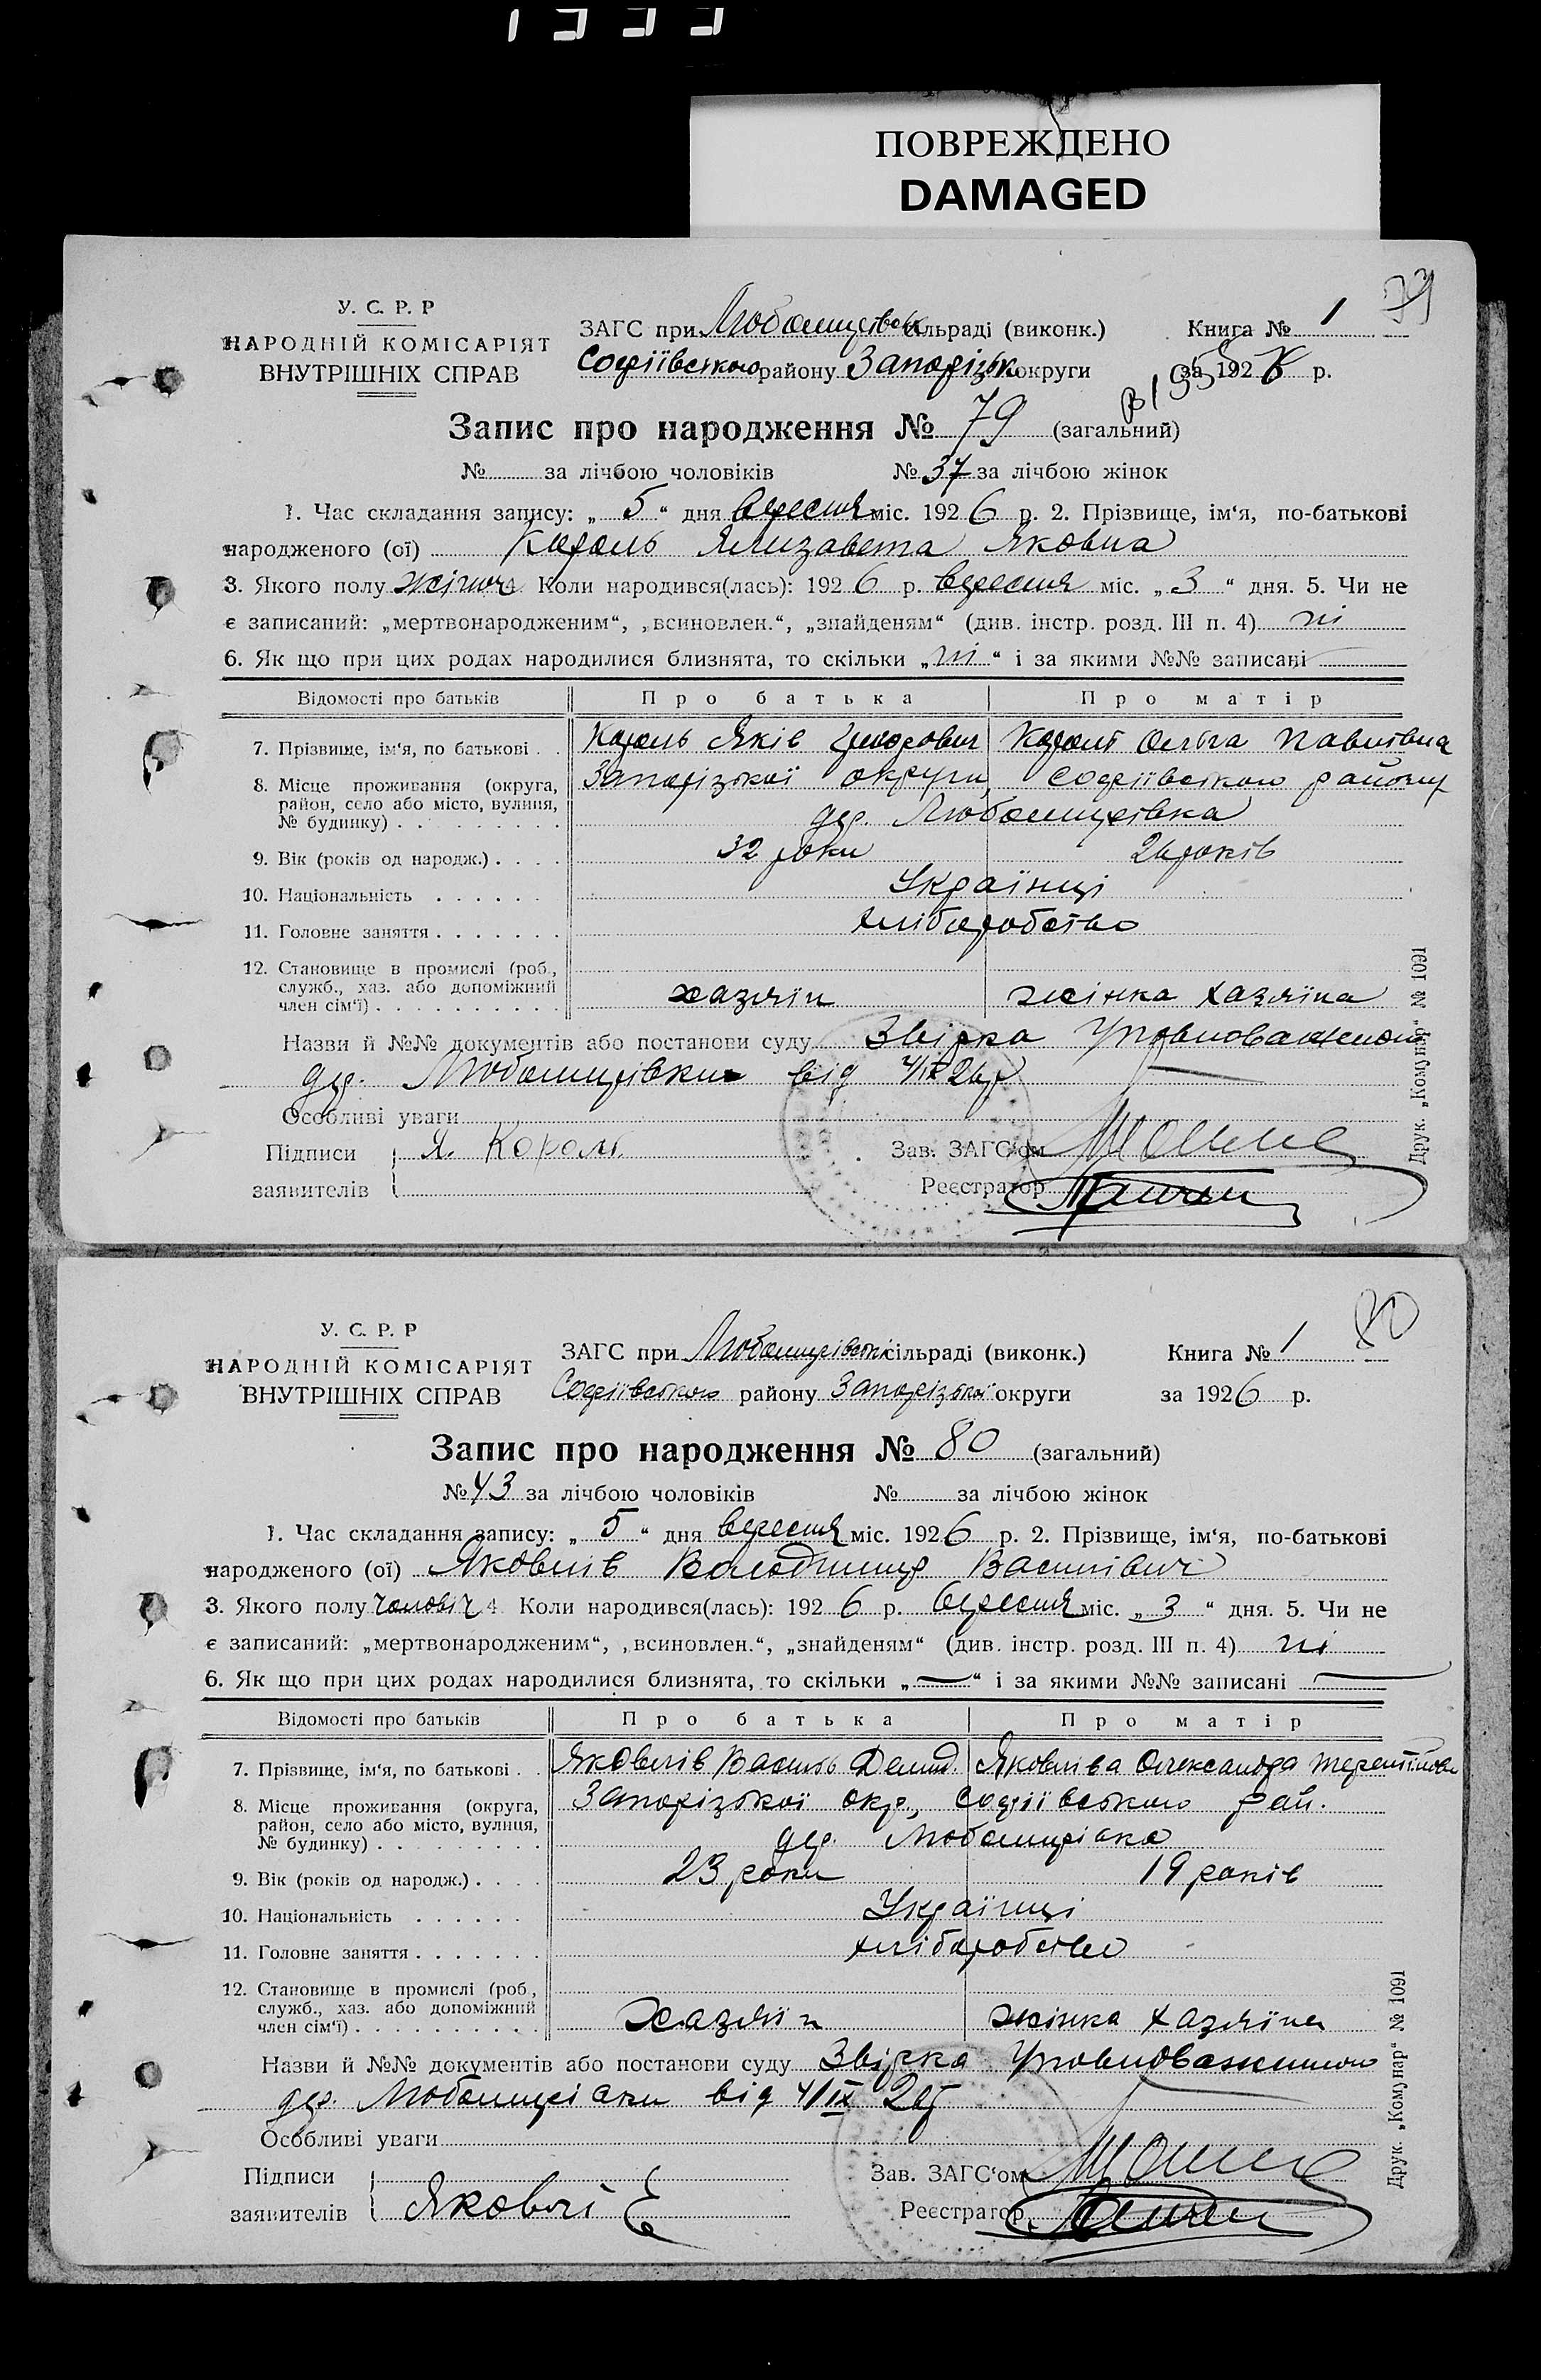 ПОВРЕЖДЕНО
DAMAGED
79
У. С. Р. Р
НАРОДНІЙ КОМІСАРІЯТ
ВНУТРІШНІХ СПРАВ
ЗАГС при Любомирівськ сільраді (виконк.) Книга № 1
Софіївського району Запорізьк. округи за 1926 р.
Запис про народження № 79 (загальний)
№ за лічбою чоловіків № 37 за лічбою жінок
1. Час складання запису: „ 5 “ дня вересня міс. 1926 р. 2. Прізвище, ім‘я, по-батькові
народженого (ої) Король Єлизавета Яковна
3. Якого полу жіноч. 4. Коли народився(лась): 1926 р. вересня міс. „ 3 “ дня. 5. Чи не
є записаний: „мертвонародженим“, „всиновлен.“, „знайденям“ (див. інстр. розд. III п. 4) ні
6. Як що при цих родах народилися близнята, то скільки „ ні “ і за якими №№ записані
Відомості про батьків Про батька Про матір
7. Прізвище, ім‘я, по батькові . . Король Яків Григорович Король Ольга Павлівна
8. Місце проживання (округа, район, село або місто, вулиця, № будинку) . . Запорізької округи, Софіївського району
дер. Любомирівка
9. Вік (років од народж.) . . . . 32 роки 26 років
10. Національність . . . . . . Українці
11. Головне заняття . . . . . . . хліборобство
12. Становище в промислі (роб., служб., хаз. або допоміжний член сім‘ї) . . хазяїн жінка хазяїна
Назви й №№ документів або постанови суду Звірка Уповноваженого
дер. Любомирівки від 4/IX 26 р
Особливі уваги
Підписи заявителів Я. Король
Зав. ЗАГС‘ом
Реєстратор
Друк. „Комунар“ № 1091
80
У. С. Р. Р
НАРОДНІЙ КОМІСАРІЯТ
ВНУТРІШНІХ СПРАВ
ЗАГС при Любомирівські сільраді (виконк.) Книга № 1
Софіївського району Запорізької округи за 1926 р.
Запис про народження № 80 (загальний)
№ 43 за лічбою чоловіків № за лічбою жінок
1. Час складання запису: „ 5 “ дня вересня міс. 1926 р. 2. Прізвище, ім‘я, по-батькові
народженого (ої) Яковлів Володимир Василівич
3. Якого полу чоловіч 4. Коли народився(лась): 1926 р. вересня міс. „ 3 “ дня. 5. Чи не
є записаний: „мертвонародженим“, „всиновлен.“, „знайденям“ (див. інстр. розд. III п. 4) ні
6. Як що при цих родах народилися близнята, то скільки „ — “ і за якими №№ записані —
Відомості про батьків Про батька Про матір
7. Прізвище, ім‘я, по батькові . . Яковлів Василь Демид. Яковліва Олександра Терентіївна
8. Місце проживання (округа, район, село або місто, вулиця, № будинку) . . Запорізької окр., Софіївського рай.
дер. Любомирівка
9. Вік (років од народж.) . . . . 23 роки 19 років
10. Національність . . . . . . Українці
11. Головне заняття . . . . . . . хліборобство
12. Становище в промислі (роб., служб., хаз. або допоміжний член сім‘ї) . . хазяїн жінка хазяїна
Назви й №№ документів або постанови суду Звірка Уповноваженого
дер. Любомирівки від 4/IX 26
Особливі уваги
Підписи заявителів Яковлі
Зав. ЗАГС‘ом
Реєстратор
Друк. „Комунар“ № 1091